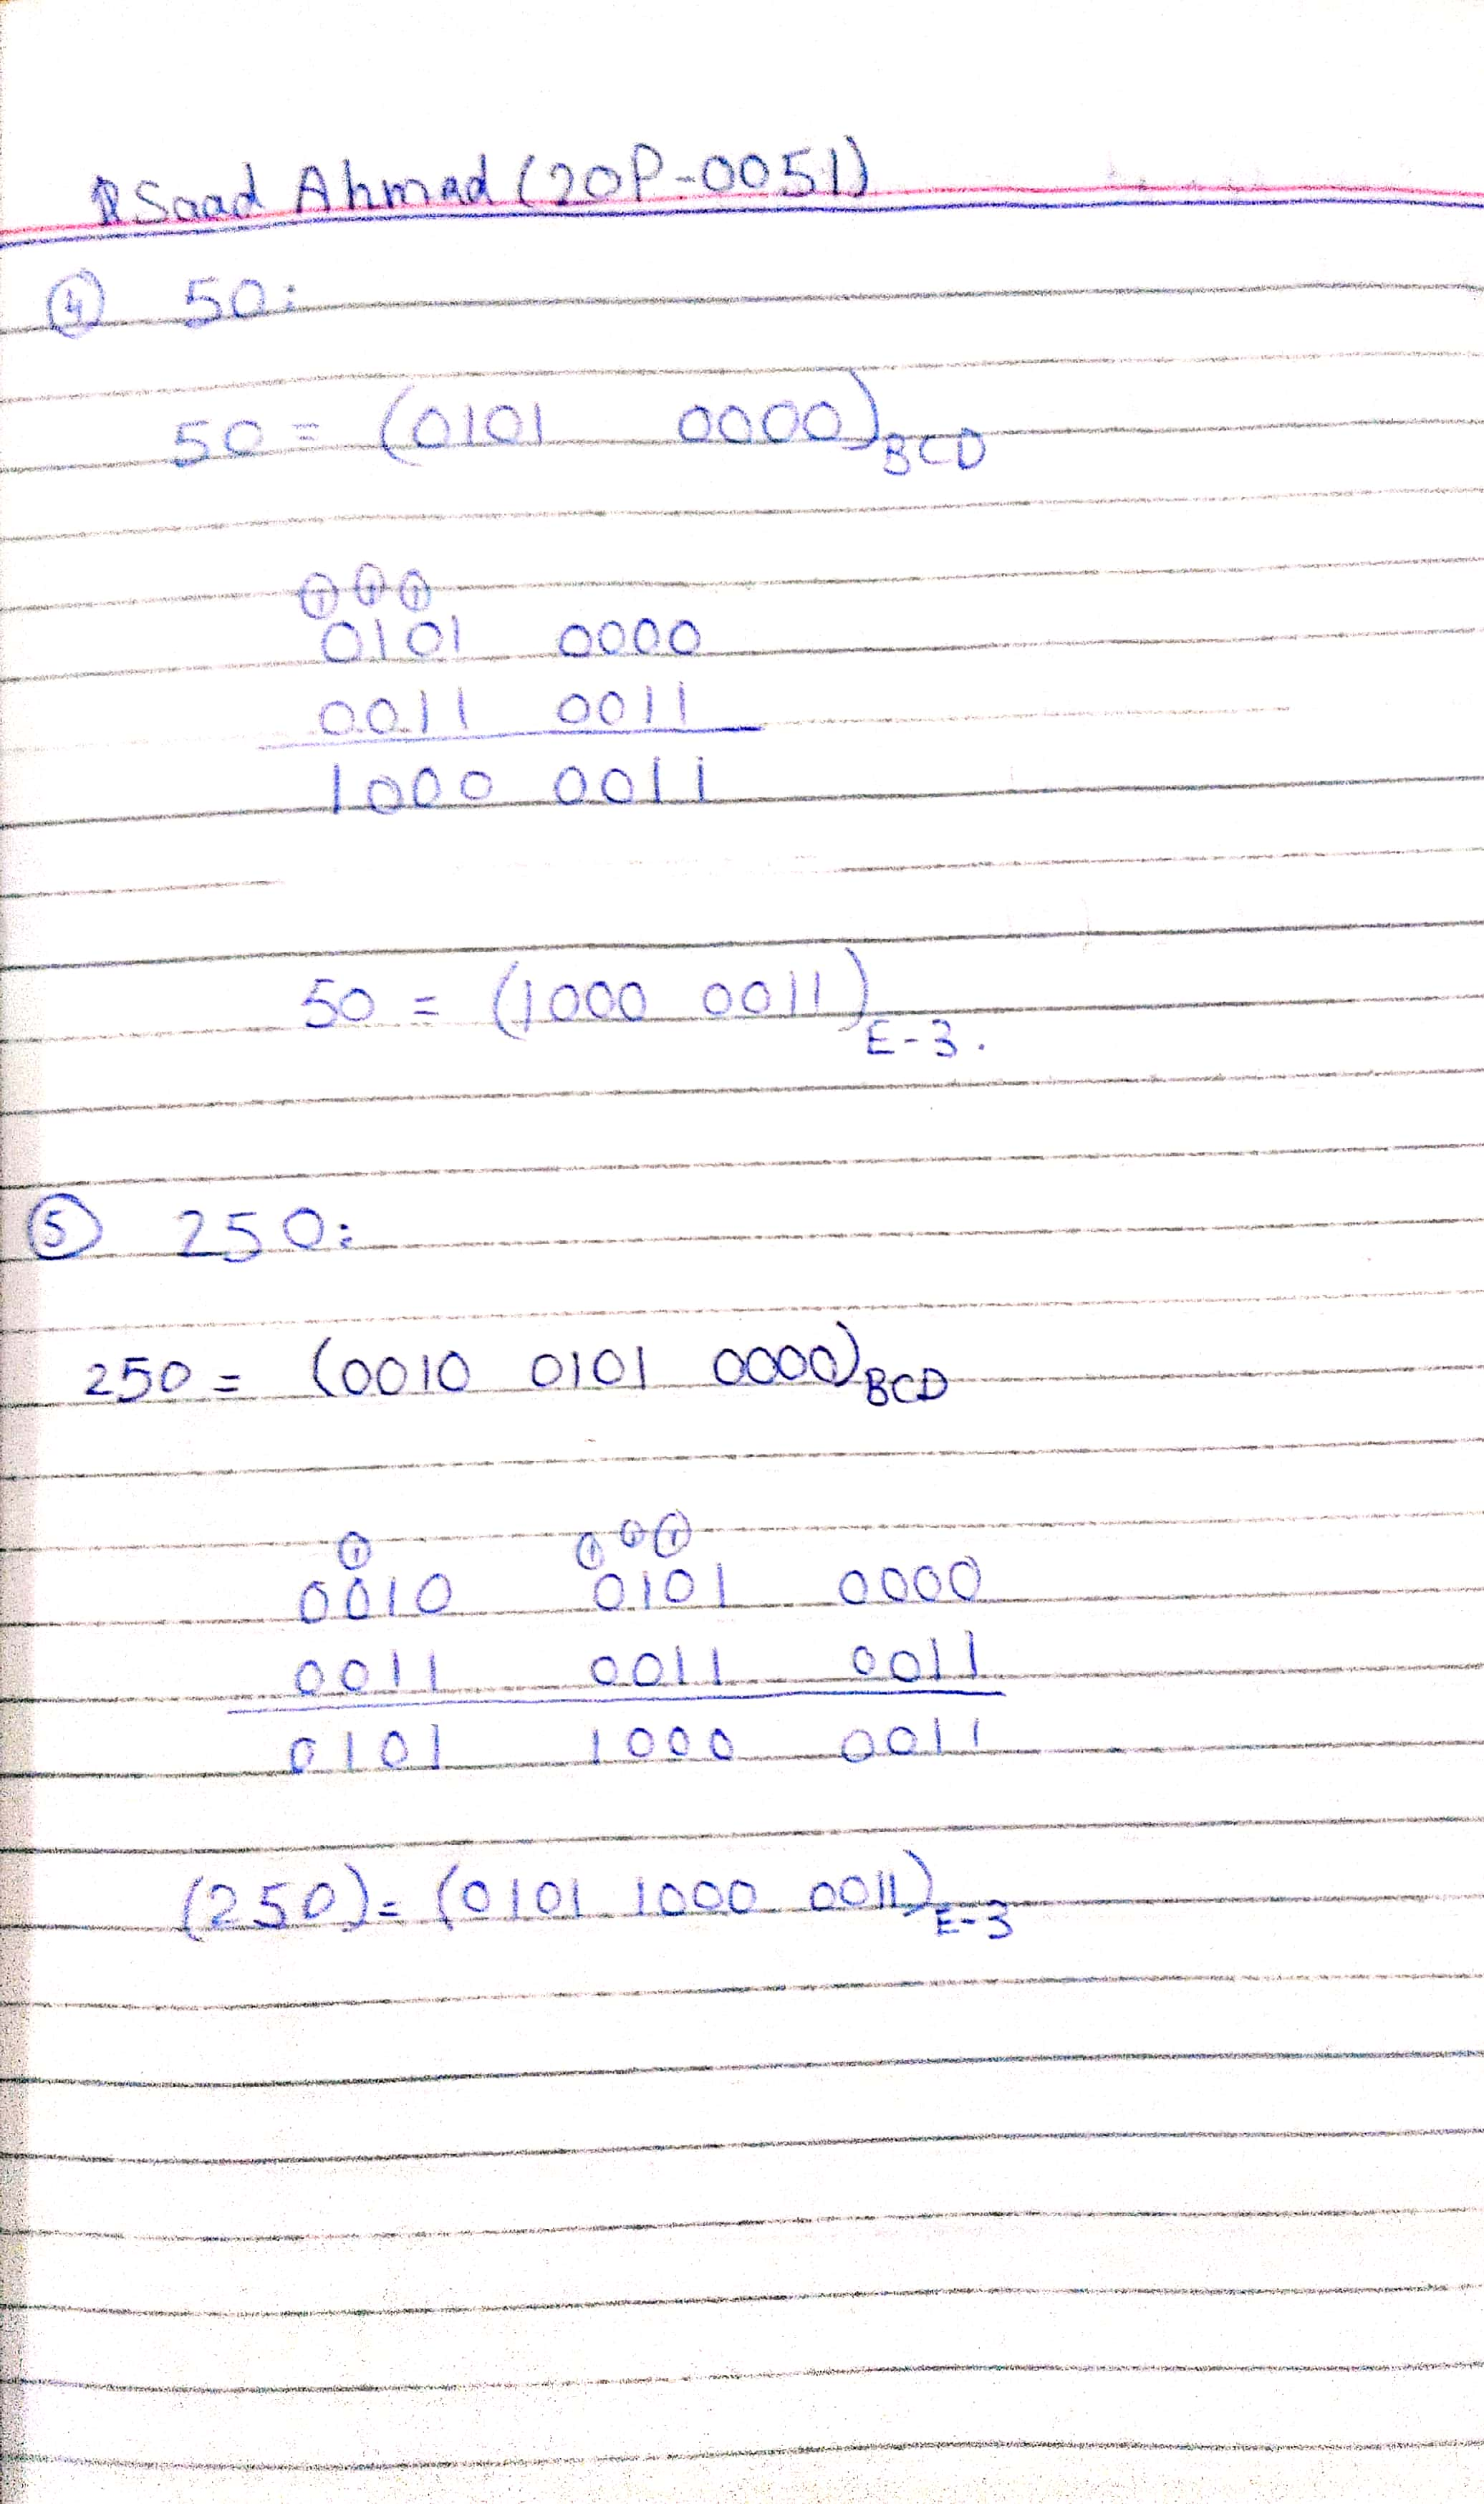 Saad Ahmad (20P-0051)
④ 50:
50 = (0101 0000)BCD
① ① ①
0101 0000
0011 0011
1000 0011
50 = (1000 0011)E-3.
⑤ 250:
250 = (0010 0101 0000)BCD
① ① ① ①
0010 0101 0000
0011 0011 0011
0101 1000 0011
(250) = (0101 1000 0011)E-3